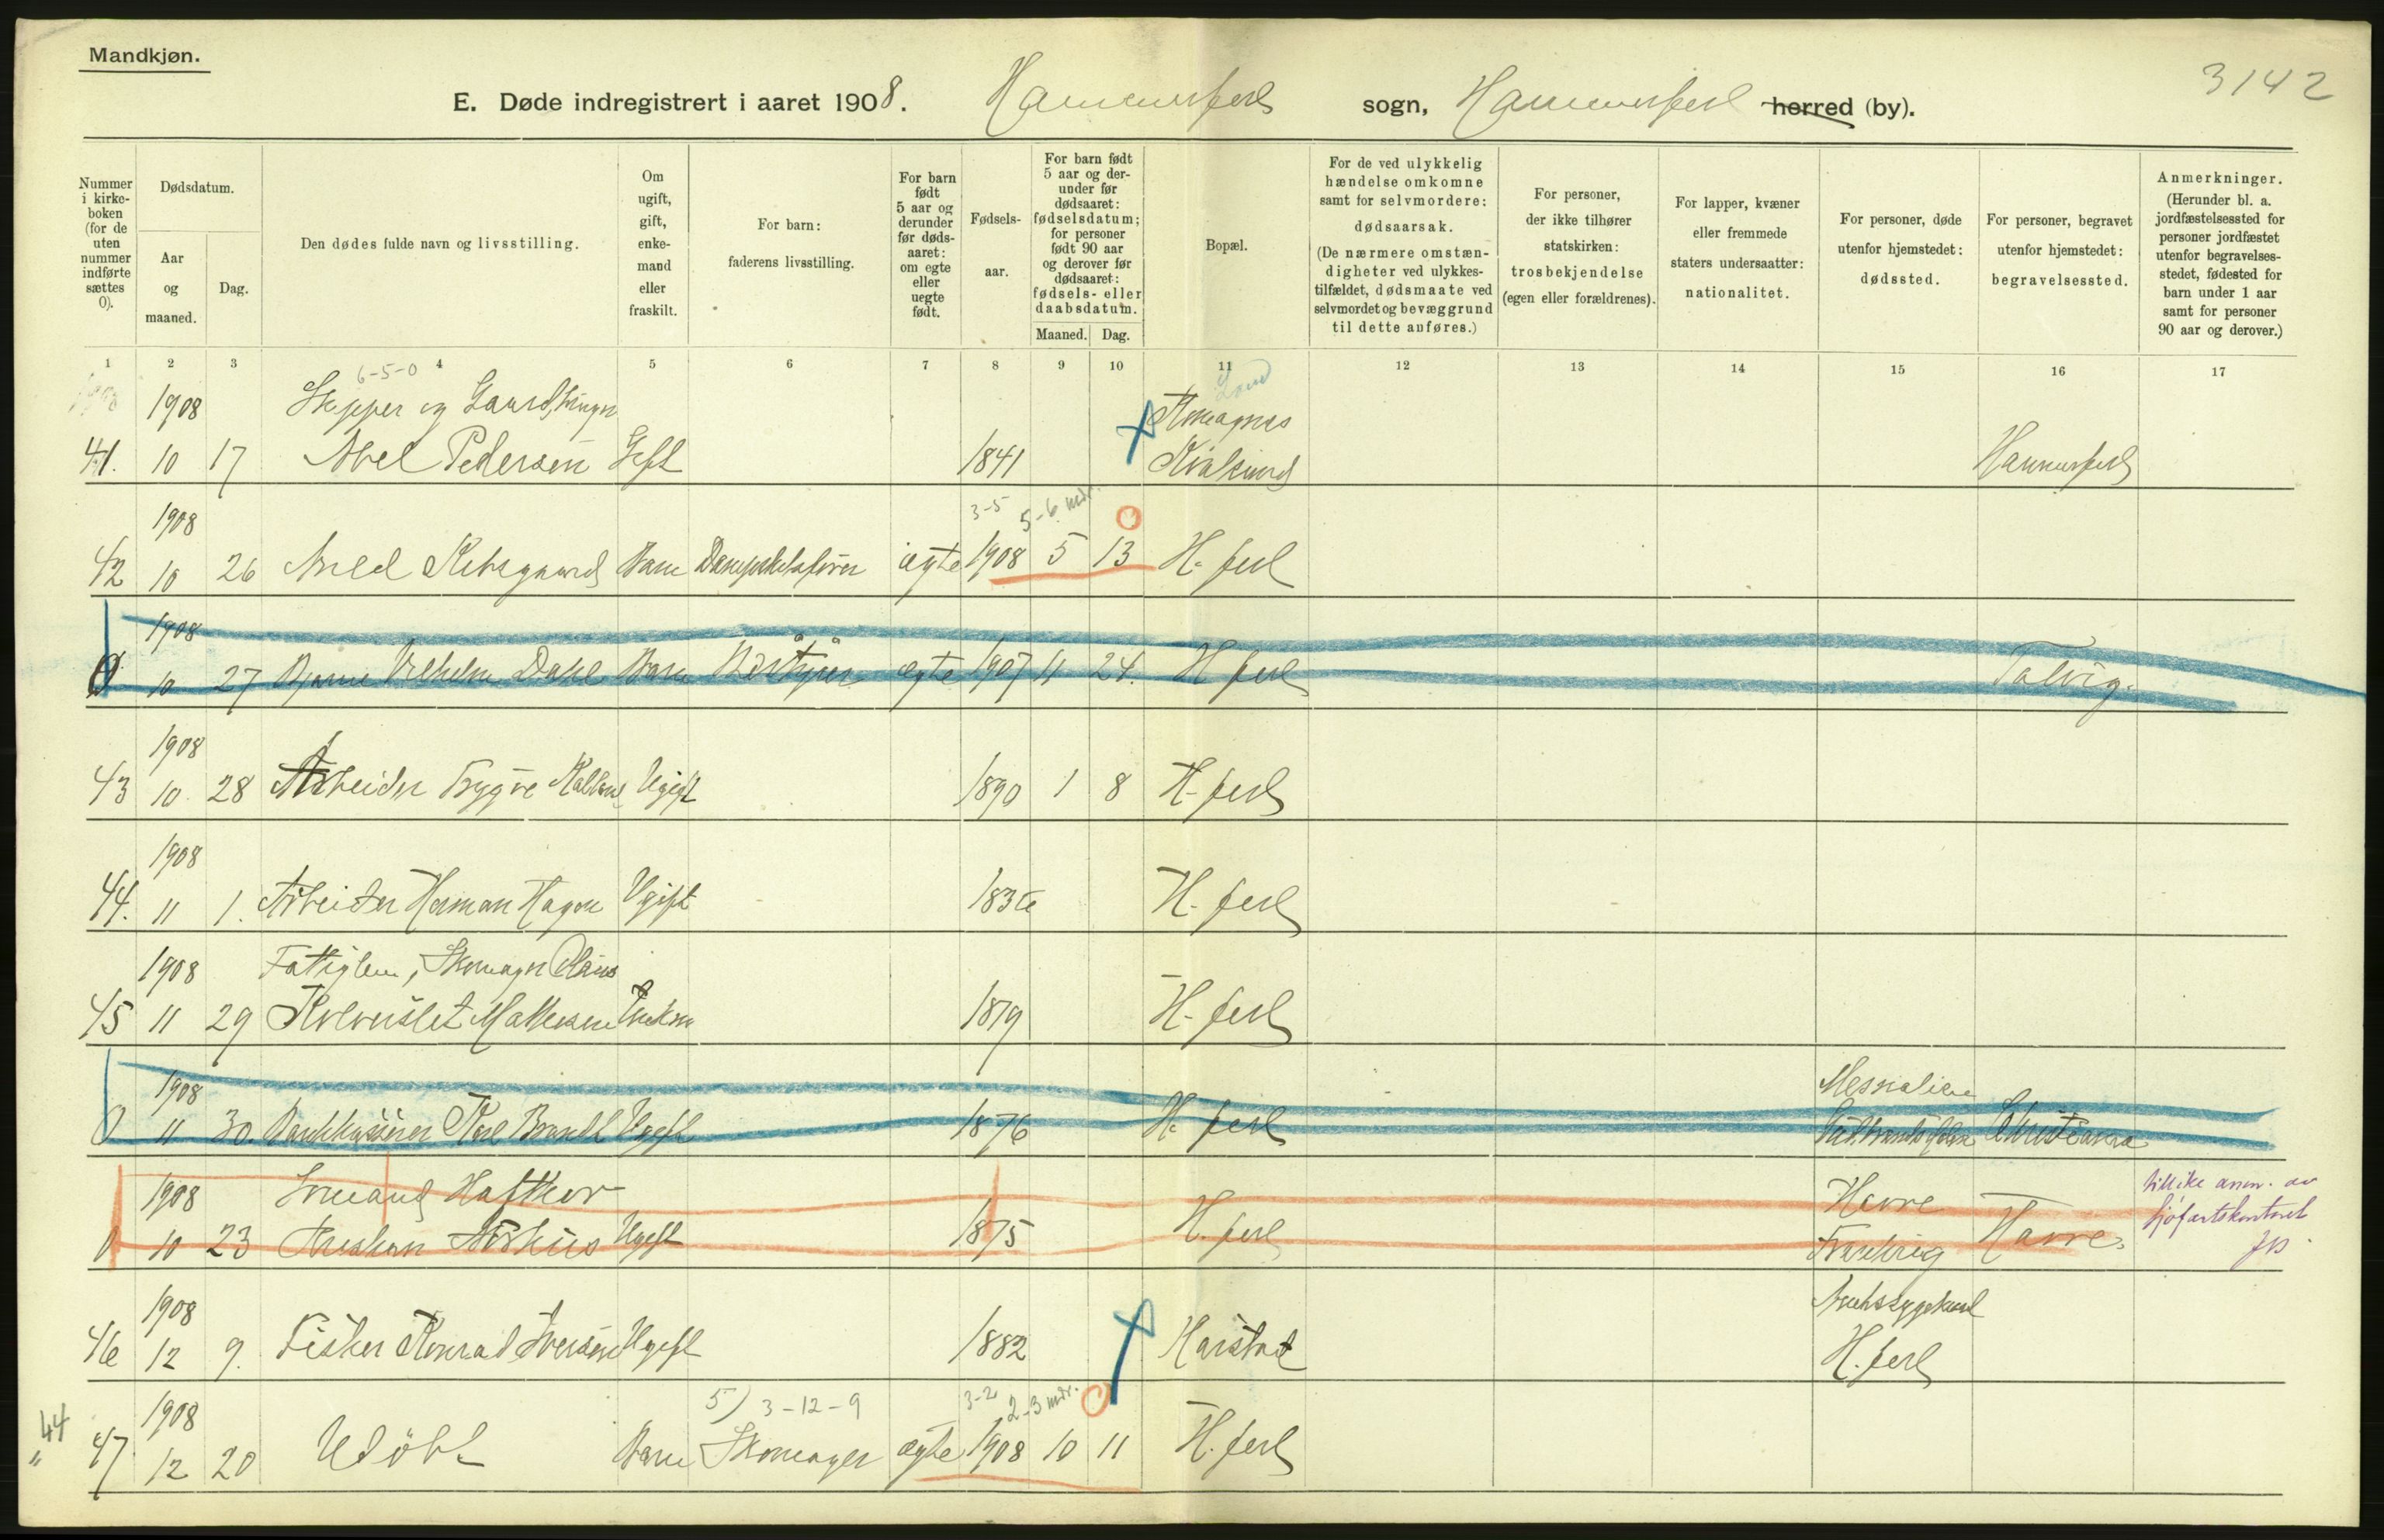 Mandkjøn.
3142
E. Døde indregistrert i aaret 1908. Hammerfest sogn, Hammerfest herred (by).
Nummer i kirkeboken (for de uten nummer indførte sættes 0).
Dødsdatum.
Aar og maaned.
Dag.
Den dødes fulde navn og livsstilling.
Om ugift, gift, enkemand eller fraskilt.
For barn: faderens livsstilling.
For barn født 5 aar og derunder før dødsaaret: om egte eller uegte født.
Fødselsaar.
For barn født 5 aar og derunder før dødsaaret: fødselsdatum; for personer født 90 aar og derover før dødsaaret: fødsels- eller daabsdatum.
Maaned. Dag.
Bopæl.
For de ved ulykkelig hændelse omkomne samt for selvmordere: dødsaarsak. (De nærmere omstændigheter ved ulykkestilfældet, dødsmaate ved selvmordet og bevæggrund til dette anføres.)
For personer, der ikke tilhører statskirken: trosbekjendelse (egen eller forældrenes).
For lapper, kvæner eller fremmede staters undersaatter: nationalitet.
For personer, døde utenfor hjemstedet: dødssted.
For personer, begravet utenfor hjemstedet: begravelsessted.
Anmerkninger. (Herunder bl. a. jordfæstelsessted for personer jordfæstet utenfor begravelsesstedet, fødested for barn under 1 aar samt for personer 90 aar og derover.)
1 2 3 4 5 6 7 8 9 10 11 12 13 14 15 16 17
6-5-0
1908 Skipper og Gaardbruger
41. 10 17 Abel Pedersen Gift 1841 Kvalsund Hammerfest
1908 3-5 5-6 mdr.
42 10 26 Barn Dampskibsfører ægte 1908 5 13 H-fest
1908
0 10 27 Bjarne Vilhelm Dahl Barn ægte 1907 11 24. H-fest Talvig.
1908
43 10 28 Arbeider Trygve Ugift 1890 1 8 H-fest
1908
44. 11 1. Arbeider Herman Hagen Ugift 183 H-fest
1908 Fattiglem, Skomager
45 11 29 Mathesen Enkem 1879 H-fest
1908
0 11 30. Bankkasserer Karl Brandt Ugift 1876 H-fest Christiania
1908 Havre
0 10 23 Ugift 1875 H-fest Frankrig Havre.
tillike anm. av sjøfartskontoret
1908
46 12 9. Fisker Konrad Iversen Ugift 1882 Harstad H.fest
1908 5) 3-12-9 3-2 2-3 mdr.
44
" 47. 12 20 Udøbt Barn Skomager ægte 1908 10 11 H.fest